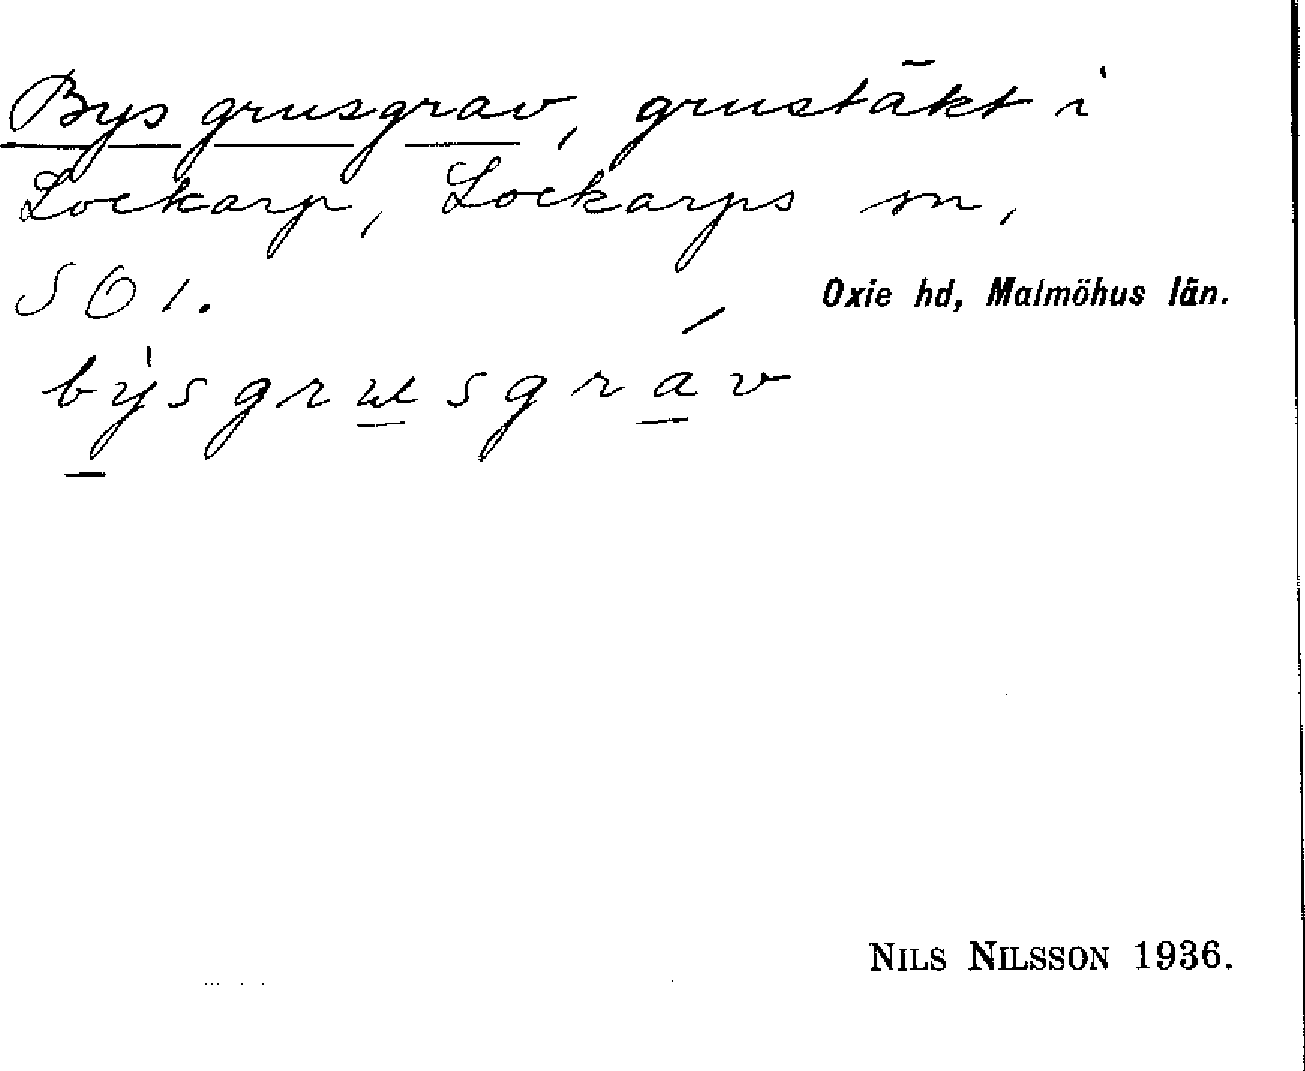 Bys grusgrav, grustäkt i
Lockarp, Lockarps sn,
SO 1. Oxie hd, Malmöhus län.
býsgrusgráv
NILS NILSSON 1936.